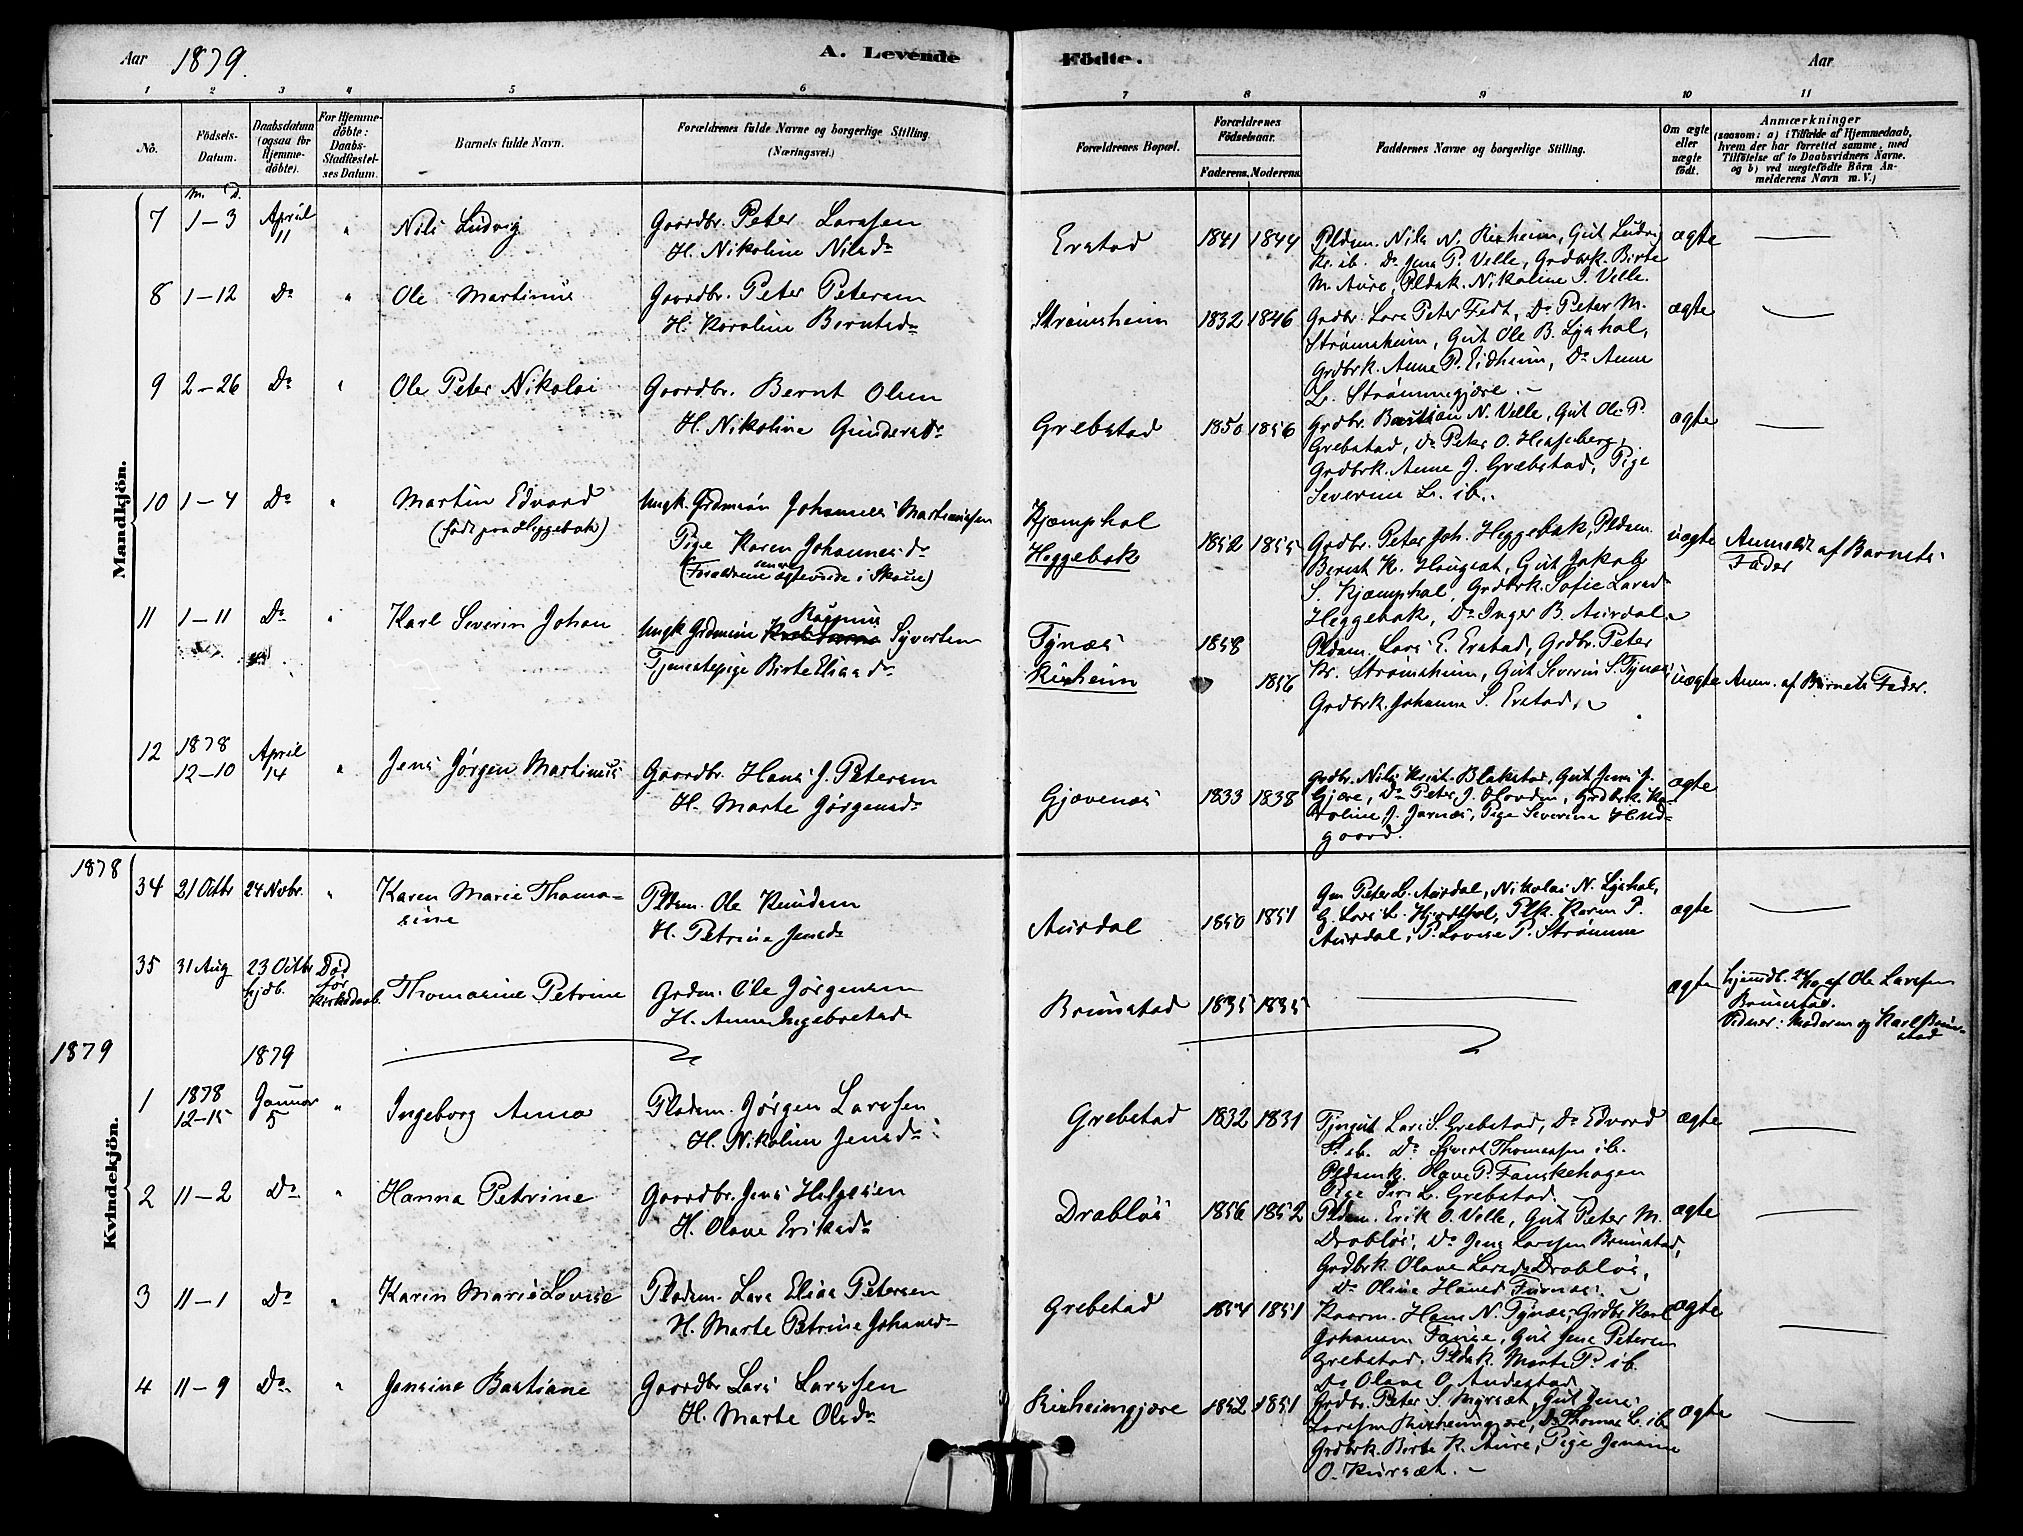 Aar 1879.
A. Levende Födte.
Aar
1 2 3 4 5 6 7 8 9 10 11
Nô.
Födsels-Datum.
Daabsdatum (ogsaa for Hjemmedöbte).
For Hjemmedöbte: Daabs-Stadfæstelses Datum.
Barnets fulde Navn.
Forældrenes fulde Navne og borgerlige Stilling. (Næringsvei.)
Forældrenes Bopæl.
Forældrenes Födselsaar.
Faderens. Moderens.
Faddernes Navne og borgerlige Stilling.
Om ægte eller uægte födt.
Anmærkninger
(saasom: a) i Tilfælde af Hjemmedaab,
hvem der har forrettet samme, med
Tilföielse af to Daabsvidners Navne.
og b) ved uægtefödte Börn Anmelderens Navn m. V.)
M. D.
Mandkjön.
7 1-3 April 11 " Nils Ludvig
Gaardbr. Peter Larssen
H. Nikoline Nilsd.
Erstad 1841 1844
Pldsm. Nils N. Rexheim, Gut Ludvig
Kr. ib. Do Jens P. Velle, Grdbrk. Birte
M. Aure, Pldsk. Nikoline J. Velle.
ægte
8 1-12 Do " Ole Martinus
Gaardbr. Peter Petersen
H. Karoline Berntsd.
Strømsheim 1832 1846
Grdbr. Lars Peter Fedt, Do Peter M.
Strømsheim, Gut Ole B. Lyshol,
Grdbrk. Anne P. Eidheim, Do Anne
L. Strømmegjære.
ægte
9 2-26 Do " Ole Peter Nikolai
Gaardbr. Bernt Olsen
H. Nikoline Gundersd.
Grebstad 1850 1856
Grdbr. Bastian N. Velle, Gut Ole P.
Grebstad, Do Peter O. Hesseberg,
Grdbrk. Anne J. Grebstad, Pige
Severine L. ib.
ægte
10 1-4 Do " Martin Edvard
(født paa Heggebak)
Ungk. Grdmsøn Johannes Martinussen
Pige Karen Johannesd.
(Forældrene senere ægteviede i Skoue)
Kjæmphol
Heggebak
1852 1855
Grdbr. Peter Joh. Heggebak, Pldsm.
Bernt K. Haugset, Gut Jakob
S. Kjæmphol, Grdbrk. Sofie Larsd.
Heggebak, Do Inger B. Aurdal.
uægte
Anmeldt af Barnets
Fader
11 1-11 Do " Karl Severin Johan
Ungk. Grdmsøn Rasmus Syvertsen
Tjenestepige Birte Eliasd.
Tynæs
Rexheim
1858
1856
Pldsm. Lars E. Erstad, Grdbr. Peter
Kr. Strømsheim, Gut Severin S. Tynæs,
Grdbrk. Johanna S. Erstad.
uægte
Anm. af Barnets Fader.
12 1878 12-10 April 14 " Jens Jørgen Martinus
Gaardbr. Hans J. Petersen
H. Marte Jørgensd.
Gjævenæs 1833 1838
Grdbr. Nils Krist. Blakstad, Gut Jens J.
Gjære, Do Peter J. Hovden, Grdbrk. Ka-
roline J. Jarnæs, Pige Severine
gaard.
ægte
1878
34 21 Octbr 24 Novbr. " Karen Marie Thoma-
sine
Pldsm. Ole Knudsen
H. Petrine Jensd.
Aurdal 1850 1851
Gm. Peter L. Aurdal, Nikolai N. Lyshol,
G. Lars L. Hjorthol, Plk. Karen P.
Aurdal, P. Lovise P. Strømme
ægte
35 31 Aug 23 Octbr hjdb. Død før Kirkedaab. Thomasine Petrine
Grdm. Ole Jørgensen
H. Anne Ingebretsd.
Brunstad 1835 1835
ægte
hjemdb. af Ole Larssen
Brunstad.
Vidner: Moderen og Karl Brun-
stad
1879
1879
Kvindekjön.
1 1878 12-15 Januar 5 " Ingeborg Anna
Pladsm. Jørgen Larssen
H. Nikoline Jensd.
Grebstad 1832 1831
Tjngut Lars S. Grebstad, Do Edvard
S. ib. Do Sjvert Thomassen ib.
Pldsmk. Olave P. Fauskehagen
Pige Siri L. Grebstad.
ægte
2 11-2 Do " Hanna Petrine
Gaardbr. Jens Helgesen
H. Olave Eriksd.
Drabløs 1856 1852
Pldsm. Erik O. Velle, Gut Peter M.
Drabløs, Do Jens Larssen Brunstad,
Grdbrk. Olave Larsd. Drabløs,
Do Oline Hansd. Furnæs.
ægte
3 11-1 Do " Karen Marie Lovise
Pladsm. Lars Elias Petersen
H. Marte Petrine Johansd.
Grebstad 1854 1851
Kaarm. Hans N. Tynæs, Grdbr. Karl
Johansen Fause, Gut Jens Petersen
Grebstad. Pldsk. Marte P. ib.
Do Olave O. Andestad
ægte
4 11-9 Do " Jensine Bastiane
Gaardbr. Lars Larssen
H. Marte Olsd.
Rexheimgjære 1852 1851
Grdbr. Peter S. Myrsæt, Gut Jens
Larssen Rexheimgjære, Do Thomas L. ib.
Grdbrk. Berte K. Aure, Pige Jensine
O. Kursæt.
ægte